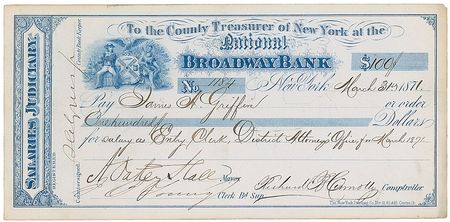 To the County Treasurer of New York at the
National
BROADWAY BANK $100/
No. 1184 New York March 31st 1871
Pay James H Griffin or order
One hundred Dollars
for salary as Entry Clerk, District Attorney's Office for March 1871
A. Oakey Hall Mayor
Clerk Bd Sup. Richard B Connolly Comptroller
SALARIES JUDICIARY.
Countersigned
County Book Keeper.